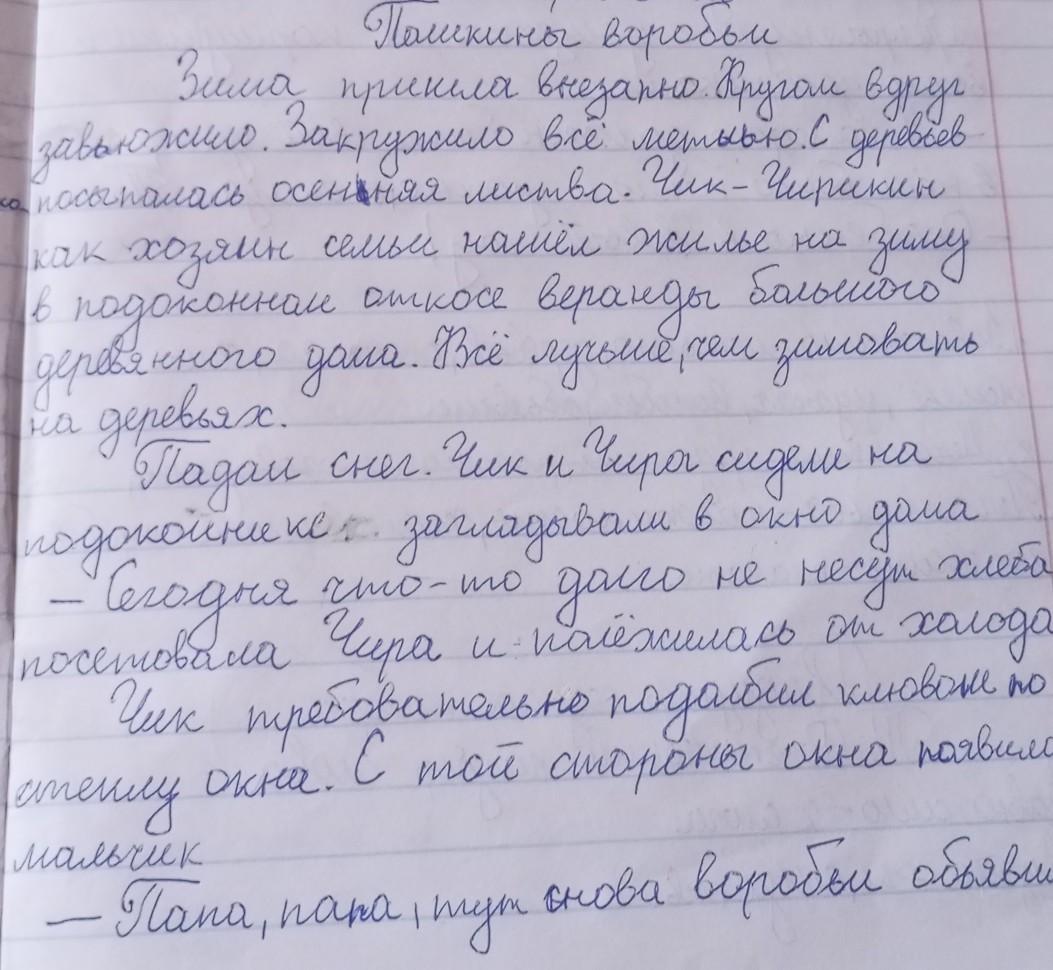 Пашкины воробьи
Зима пришла внезапно. Кругом вдруг
завьюжило. Закружило всё метелью. С деревьев
посыпалась осенняя листва. Чик-Чирикин
как хозяин семьи нашёл жилье на зиму
в подоконном откосе веранды большого
деревянного дома. Всё лучьше, чем зимовать
на деревьях.
Падал снег. Чик и Чира сидели на
подоконнике загладывали в окно дома
— Сегодня что-то долго не несут хлеба
посетовала Чира и поёжилась от холода
Чик требовательно подолбил клювом по
стеклу окна. С той стороны окна появило
мальчик
— Папа, папа, тут снова воробьи обьяви